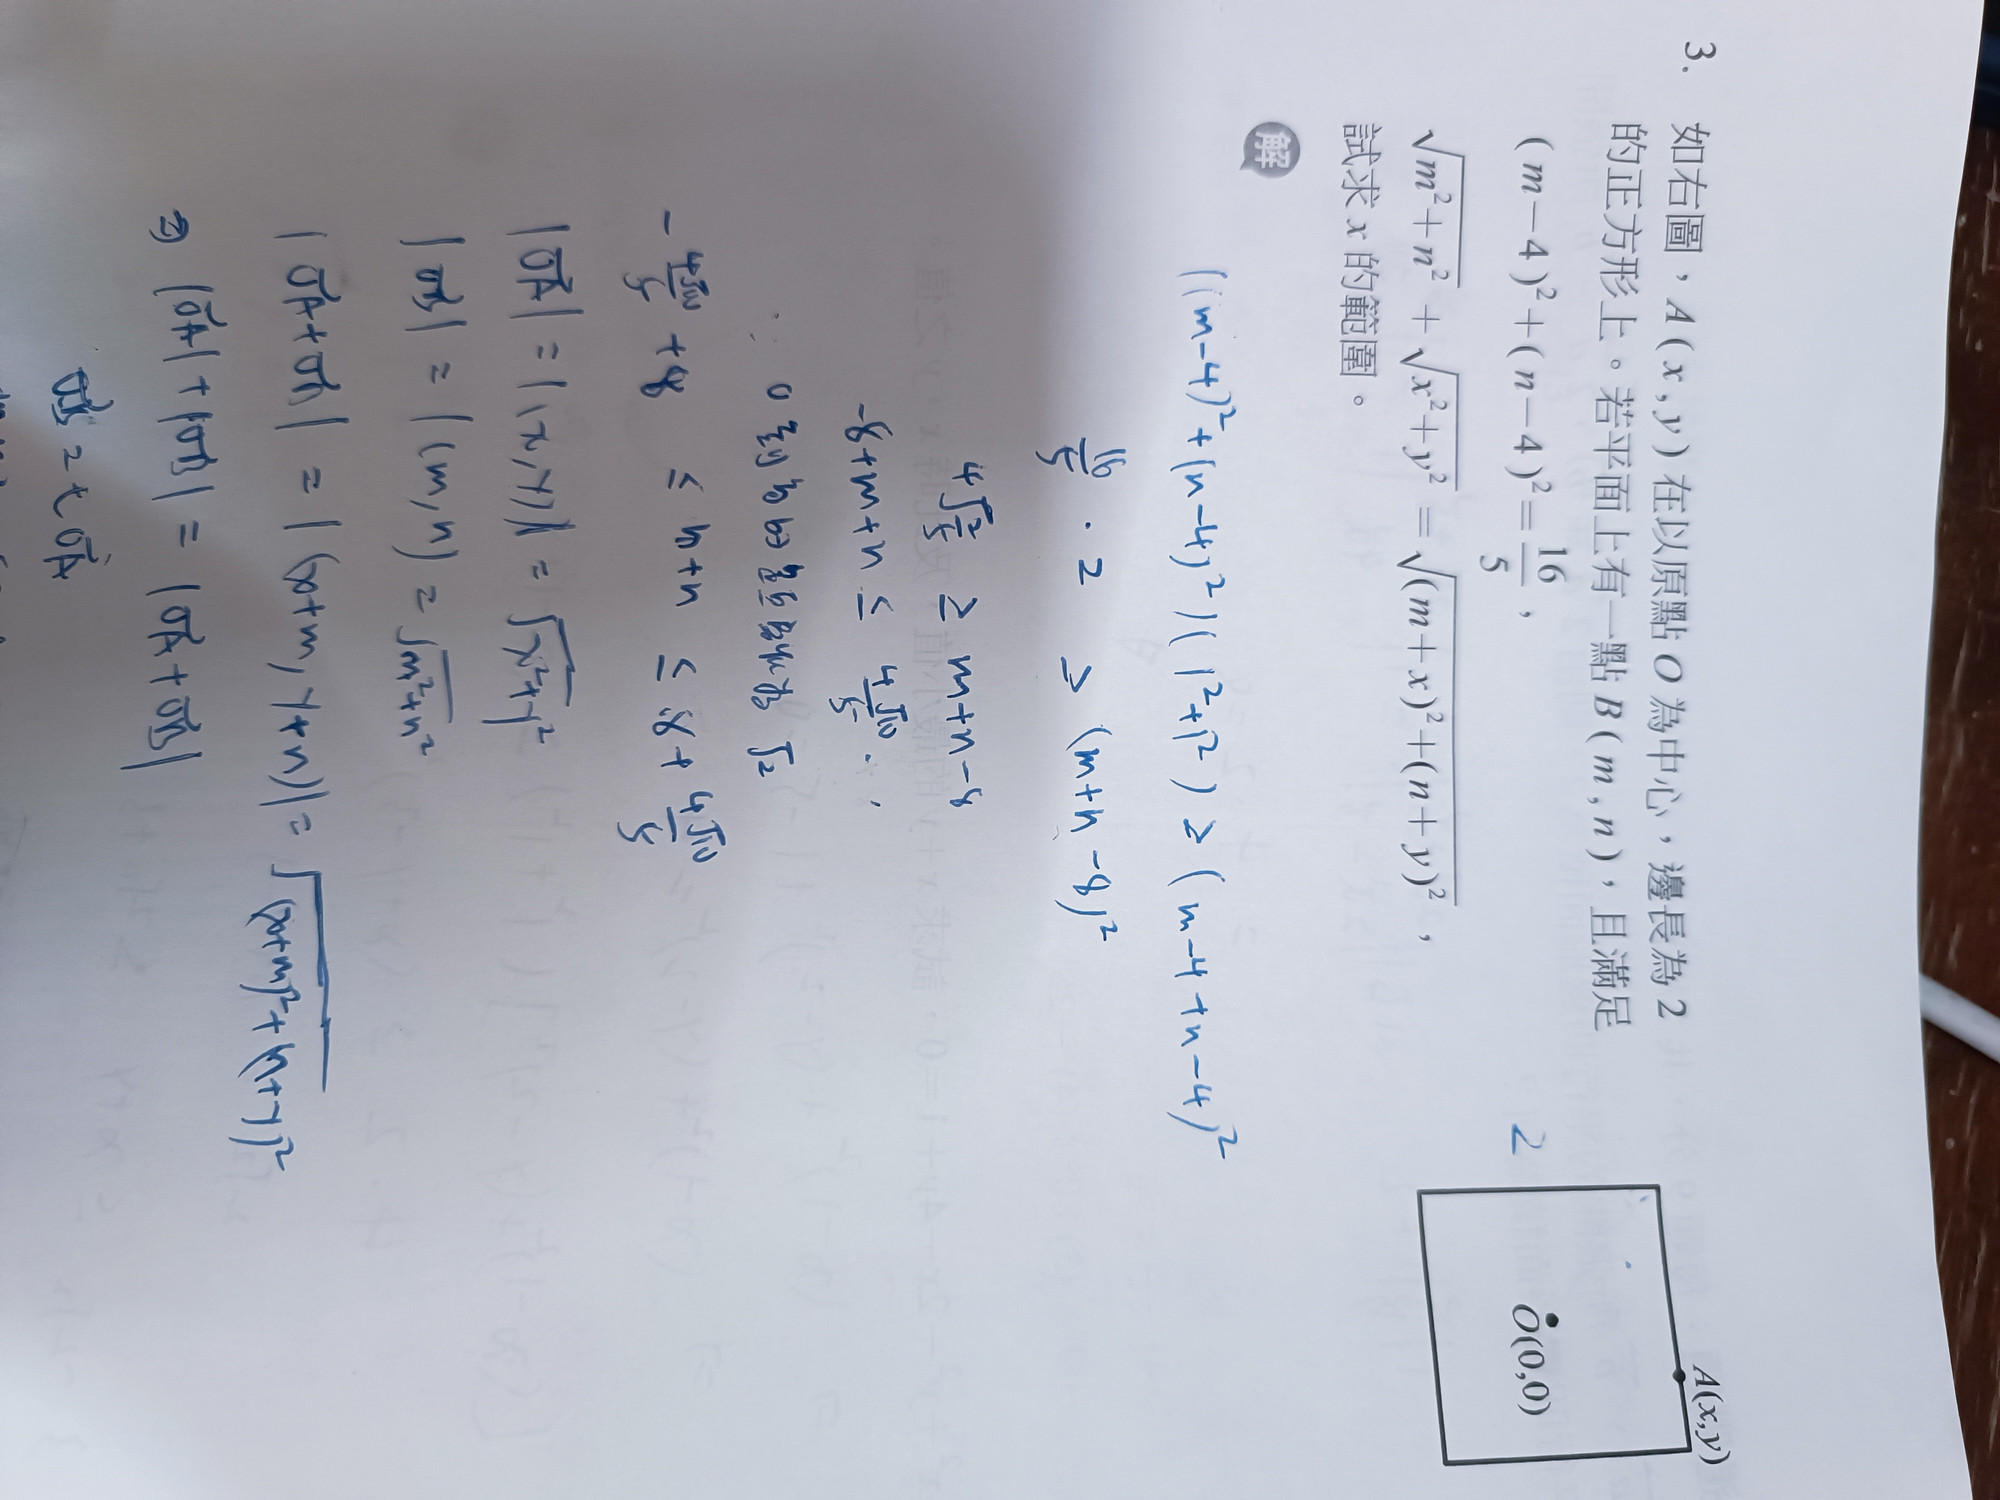 3. 如右圖，A(x,y)在以原點O為中心，邊長為2
的正方形上。若平面上有一點B(m,n)，且滿足
(m－4)²＋(n－4)²＝16/5，
√(m²＋n²)＋√(x²＋y²)＝√((m＋x)²＋(n＋y)²)，
試求x的範圍。
A(x,y)
O(0,0)
2
解
((m-4)²+(n-4)²)(1²+1²) ≥ (m-4+n-4)²
16/5 · 2 ≥ (m+n-8)²
≥ m+n-8
-8+m+n ≤ 4√10/5
√2
-4√10/5 +8 ≤ m+n ≤ 8+ 4√10/5
|OA| = |(x,y)| = √(x²+y²)
|OB| = |(m,n) = √(m²+n²)
|OA+OB| = |(x+m, y+n)| = √((x+m)²+(n+y)²)
|OA|+|OB| = |OA+OB|
OB = t OA